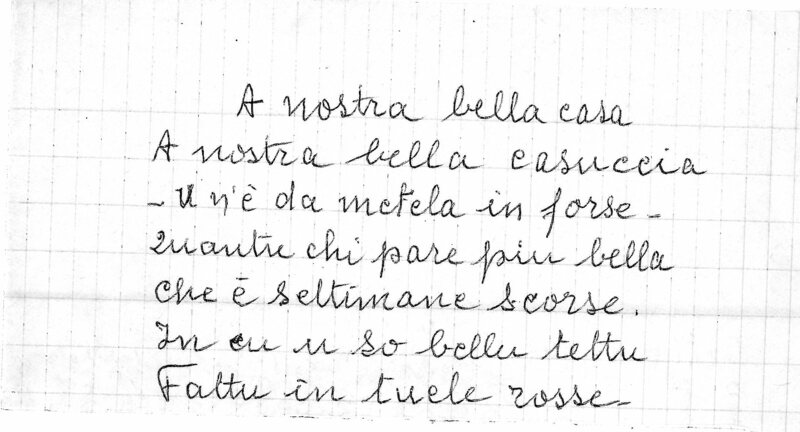 A nostra bella casa
A nostra bella casuccia
- U n'è da metela in forse -
Quantu chi pare piu bella
Che è settimane scorse.
In cu u so bellu tettu
Fattu in tuele rosse -